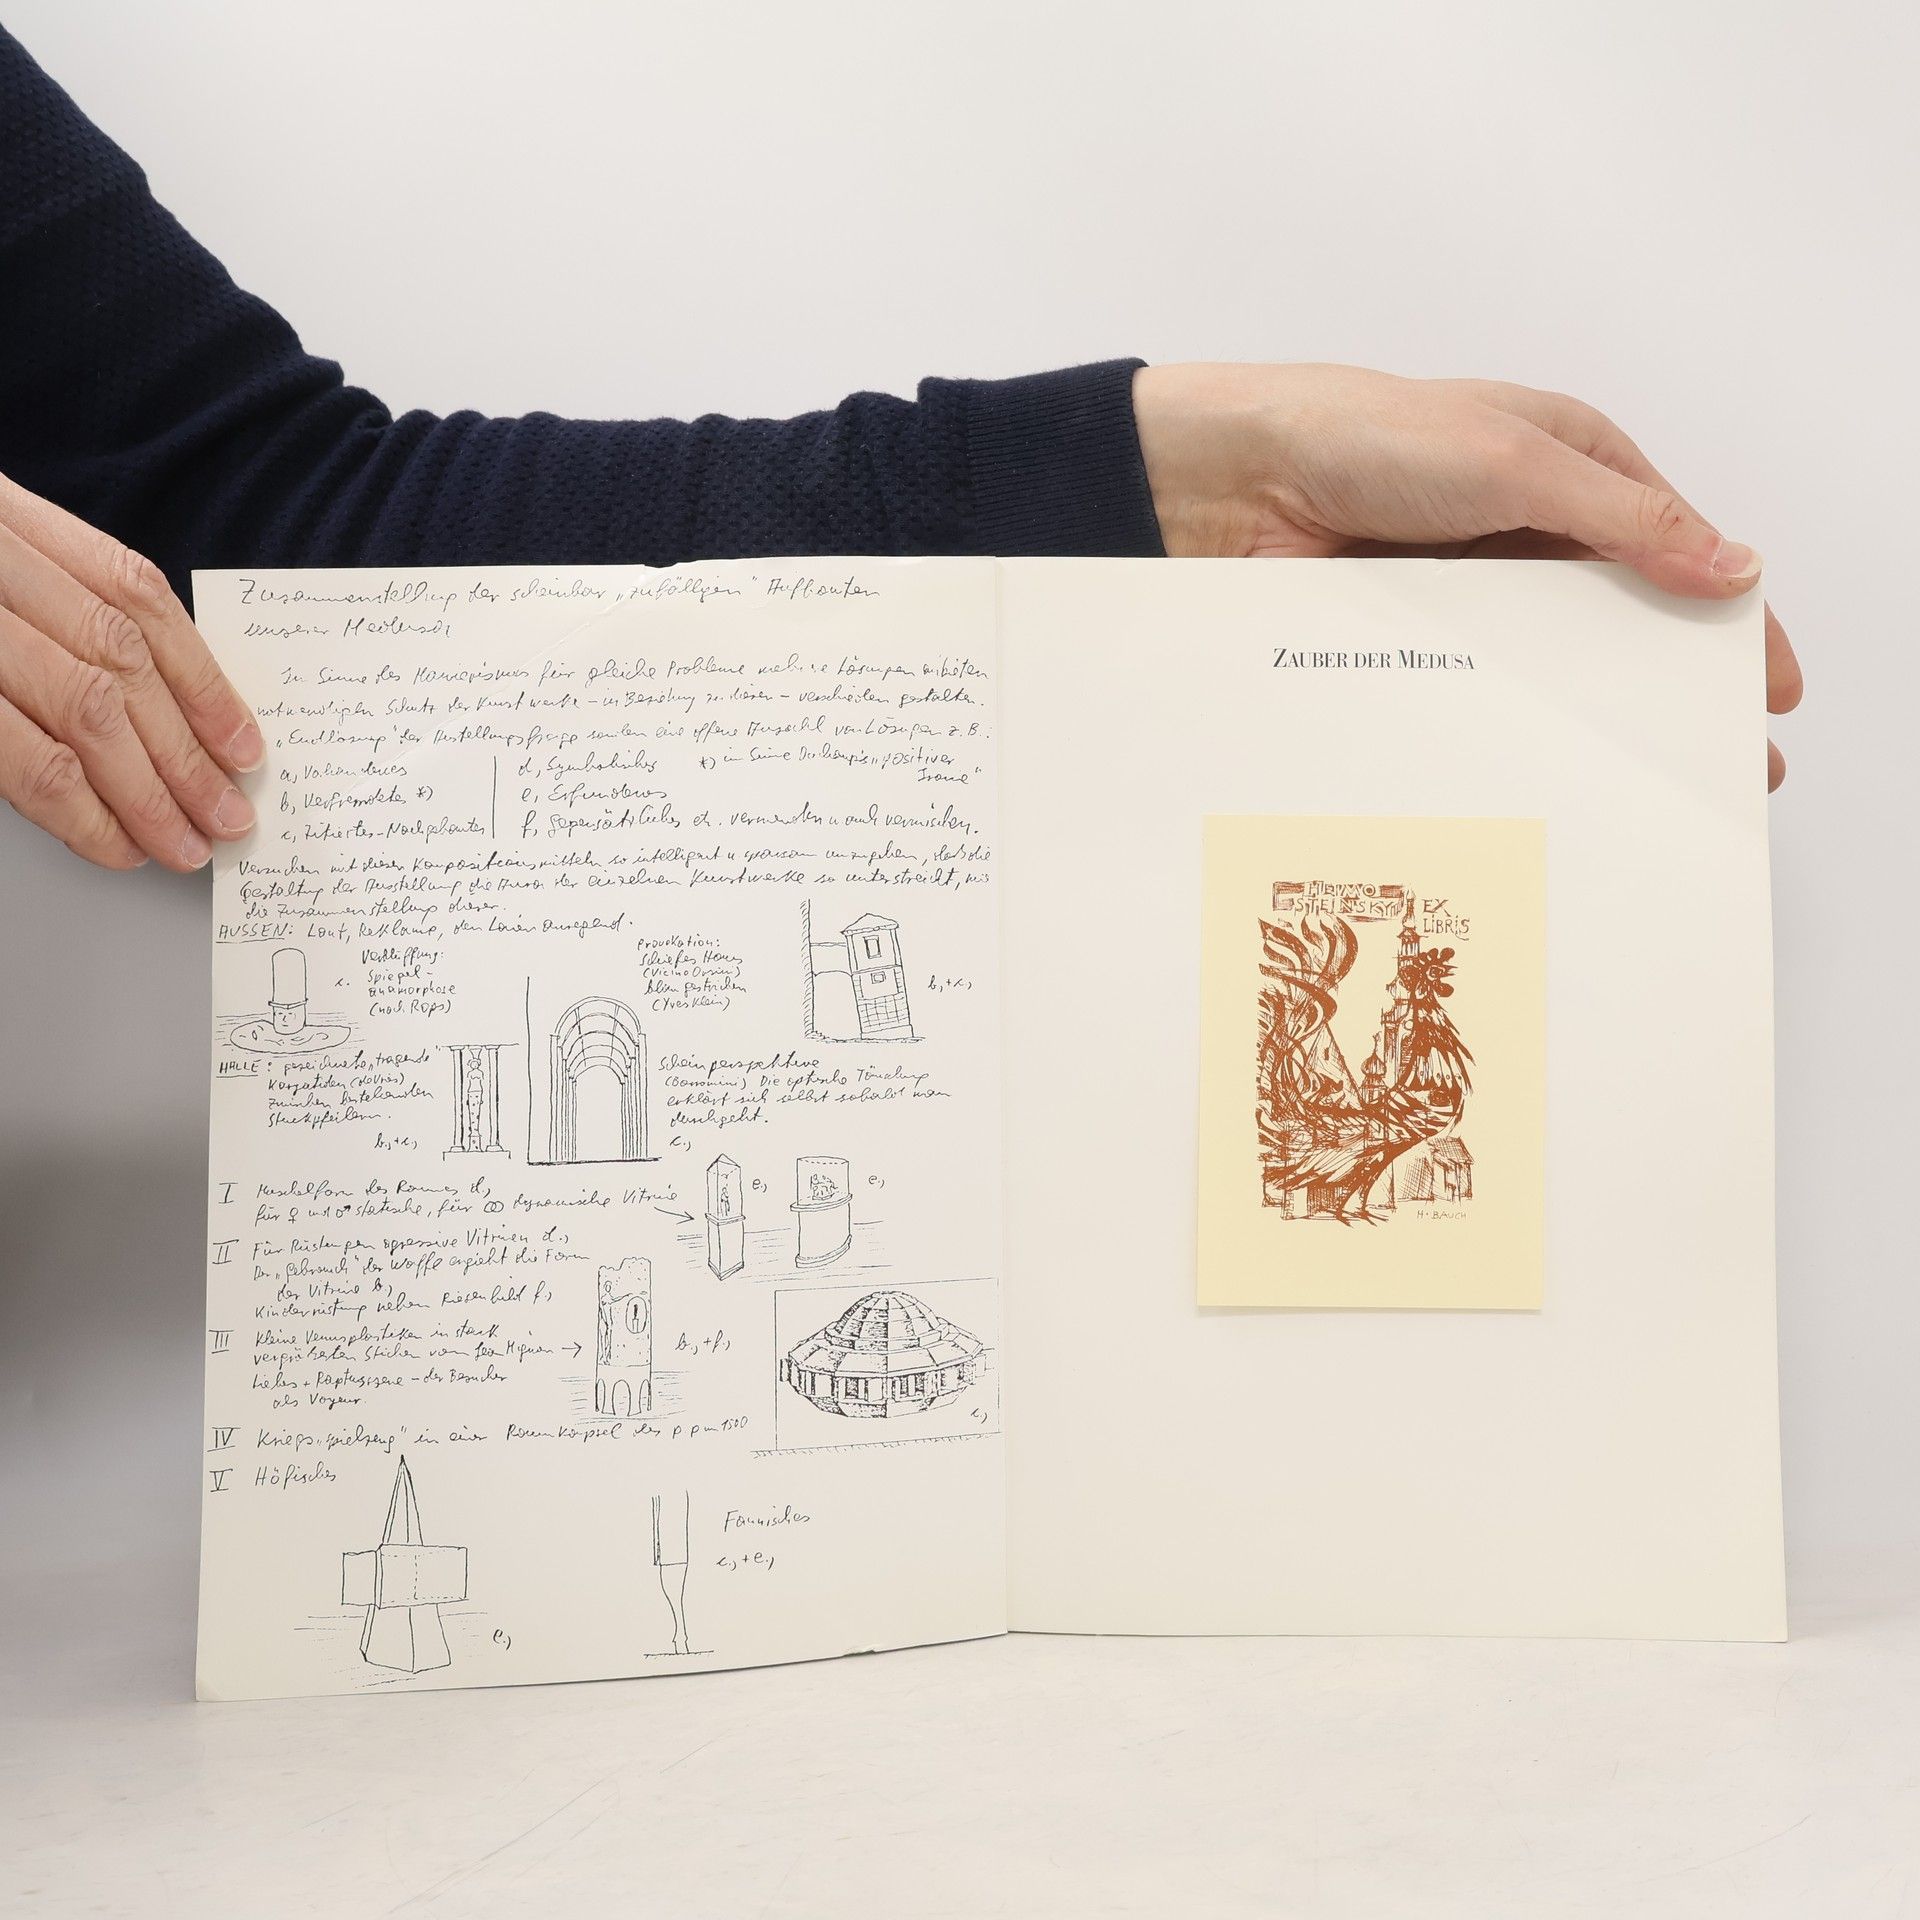 Zusammenstellung der scheinbar „zufälligen" Aufbauten
unserer Medusa
Im Sinne des Manierismus für gleiche Probleme mehrere Lösungen anbieten
notwendigen Schutz der Kunstwerke – in Beziehung zu diesen – verschieden gestalten.
„Endlösung" der Ausstellungsfrage sondern eine offene Anzahl von Lösungen z.B.:
a, Vorhandenes
b, Verfremdetes *)
c, Zitiertes-Nachgebautes
d, Symbolisches
e, Erfundenes
f, gegensätzliches etc. verwenden u auch vermischen.
*) im Sinne Duchamp's „positiver
Ironie"
Versuchen mit diesen Kompositionsmitteln so intelligent u. sparsam umzugehen, daß die
Gestaltung der Ausstellung die Aura der einzelnen Kunstwerke so unterstreicht, wie
die Zusammenstellung dieser.
AUSSEN: Laut, Reklame, den Laien anregend.
Verblüffung:
Spiegel-
anamorphose
(nach Rops)
c.
Provokation:
Schiefes Haus
(Vicino Orsini)
blau gestrichen
(Yves Klein)
b,+c,
HALLE: gezeichnete „tragende"
Karyatiden (de Vries)
zwischen bestehenden
Stuckpfeilern.
b.,+c.,
Scheinperspektive
(Borromini) Die optische Täuschung
erklärt sich selbst sobald man
durchgeht.
c.,
I Muschelform des Raumes d.,
für ♀ und ♂ statische, für dynamische Vitrine
e.,
e.,
II Für Rüstungen agressive Vitrinen d.,
Der „Gebrauch" der Waffe ergiebt die Form
der Vitrine b.,
Kinderrüstung neben Riesenbild f.,
III Kleine Venusplastiken in stark
vergrößerten Stichen von Jean Mignon
Liebes + Raptusszene – der Besucher
als Voyeur.
b.,+f.,
c.,
IV Kriegs„spielzeug" in einer Raumkapsel des 1500
V Höfisches
e.,
Faunisches
c.,+e.,
ZAUBER DER MEDUSA
HEIMO
STEINSKY
EX
LIBRIS
H·BAUCH